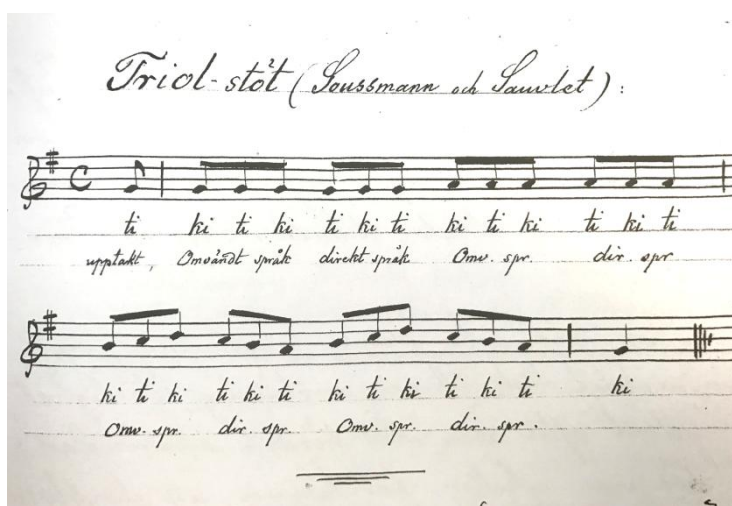 Triol-stöt (Soussmann och Sauvlet):
ti ki ti ki ti ki ti ki ti ki ti ki ti
upptakt, Omvändt språk direkt språk Omv. spr. dir. spr
ki ti ki ti ki ti ki ti ki ti ki ti ki
Omv. spr. dir. spr. Omv. spr. dir. spr.